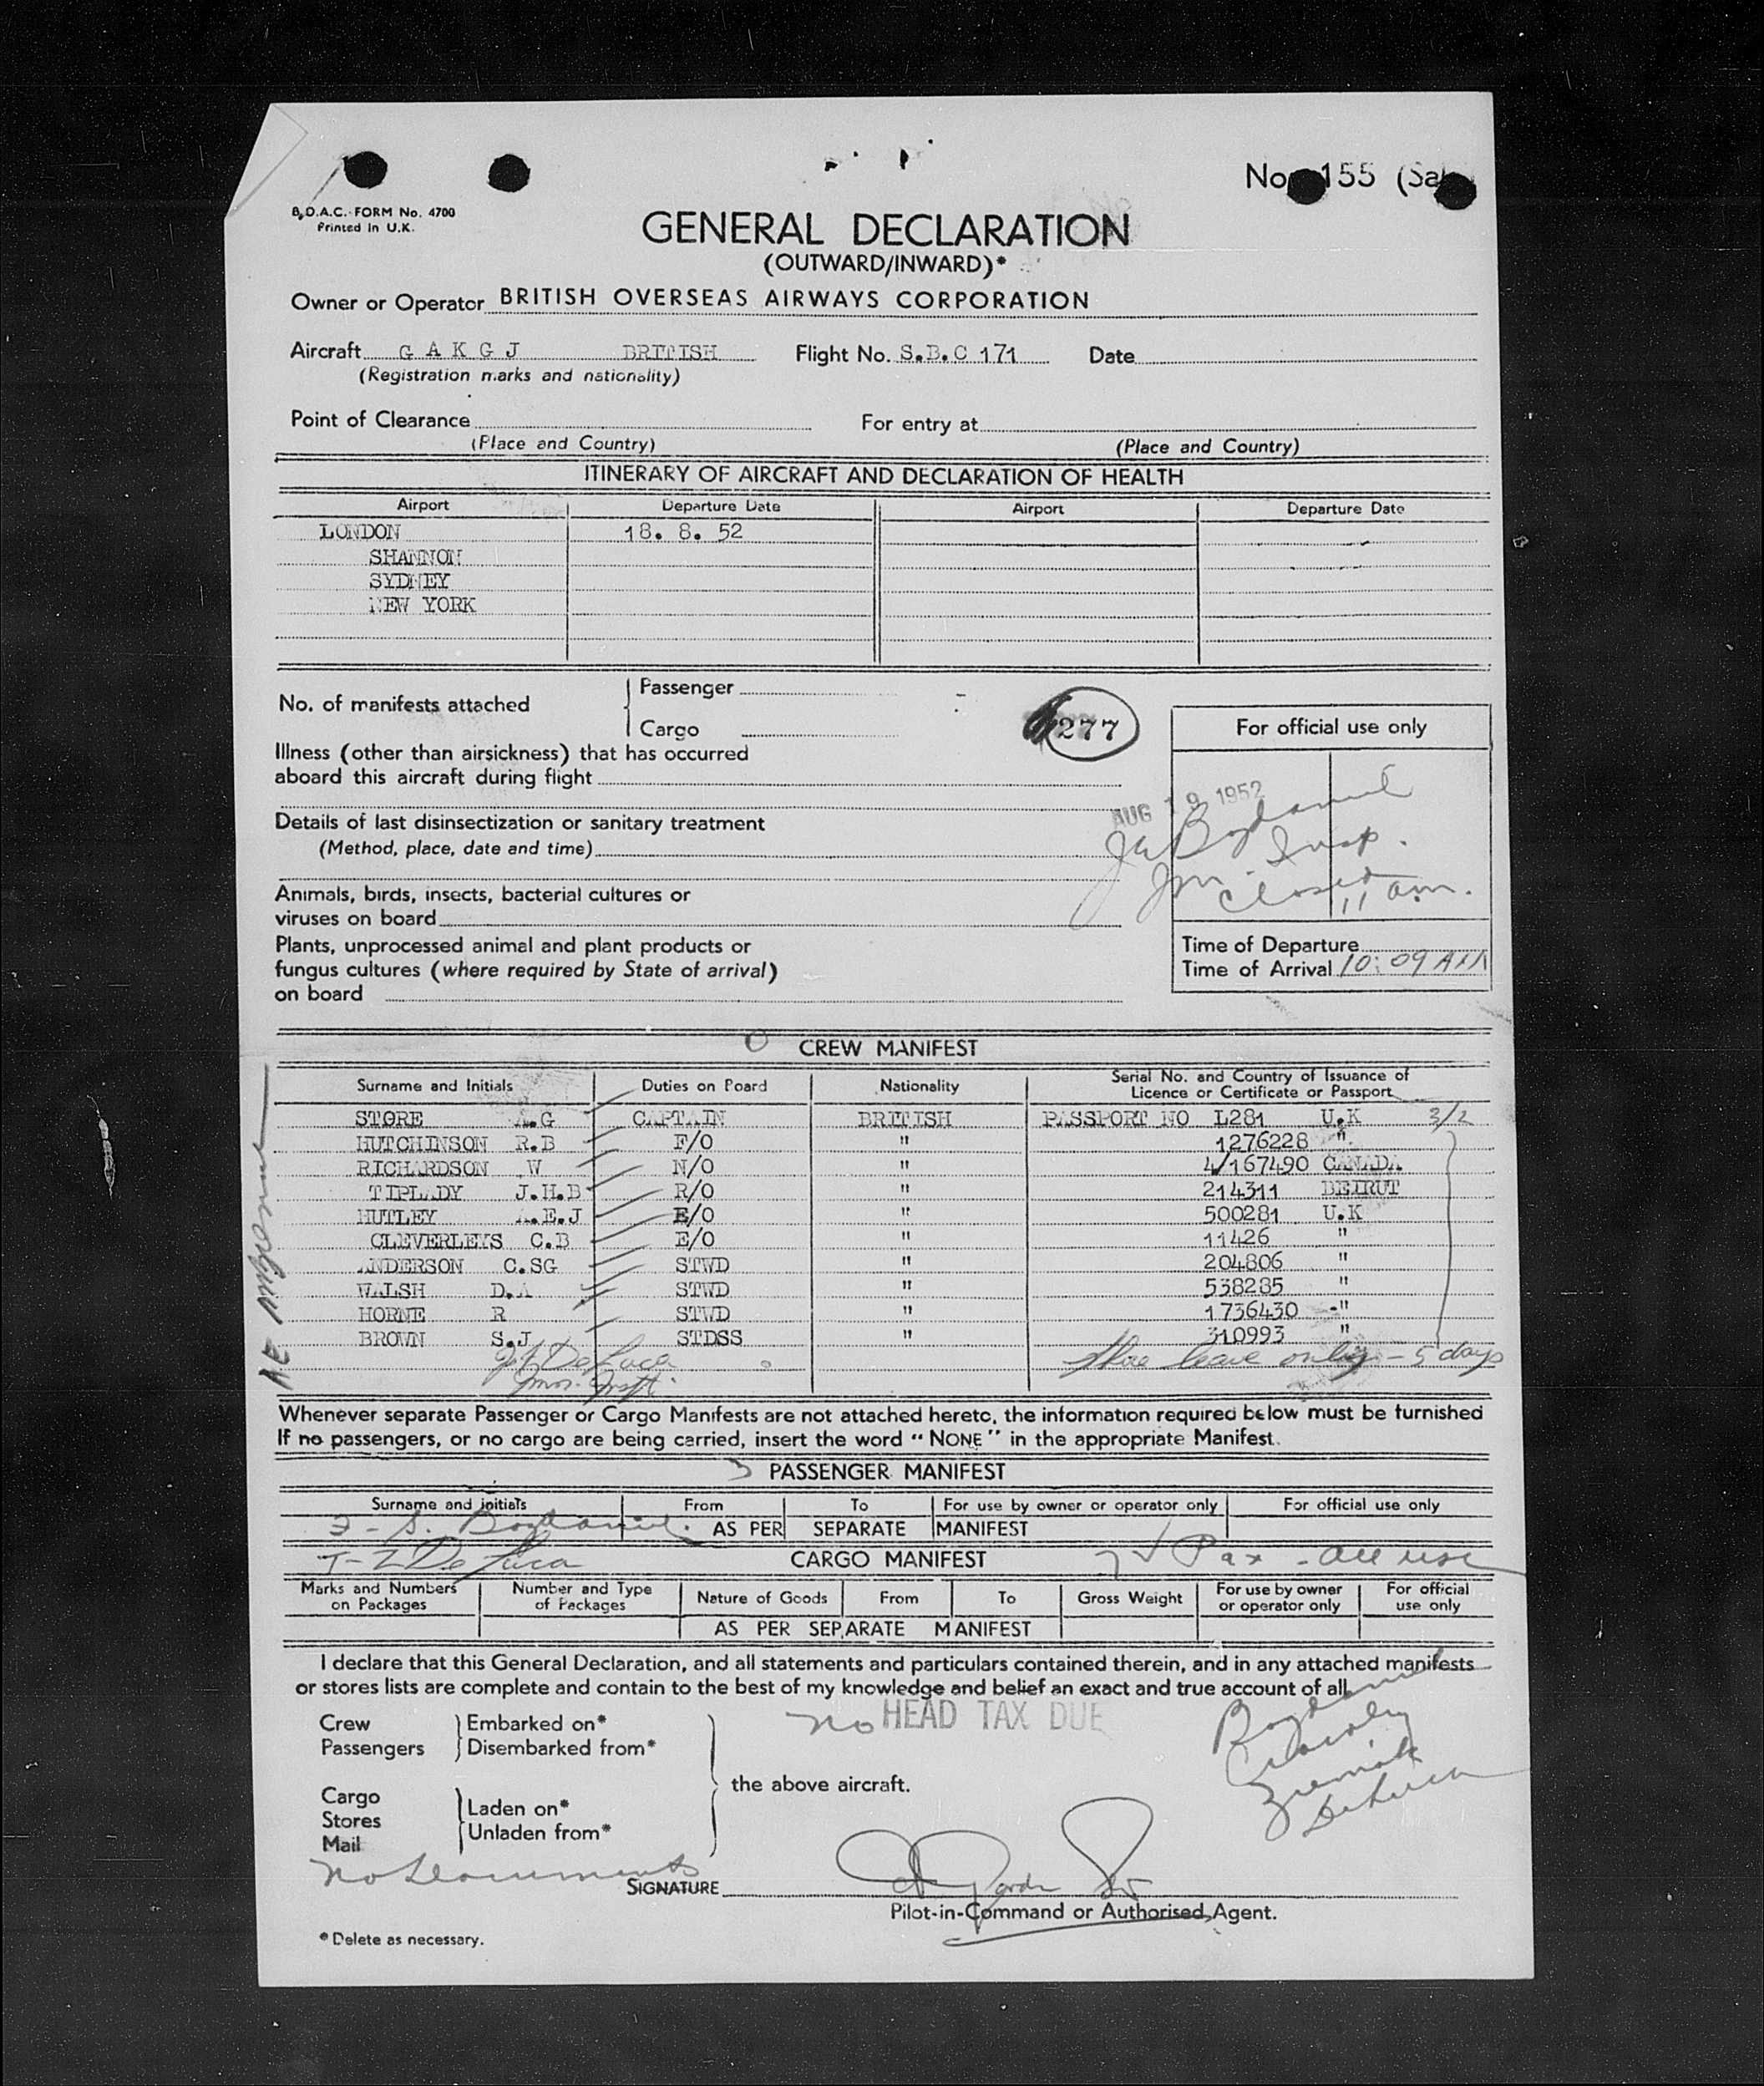 No 155 (Sa
B.O.A.C. FORM No. 4700
Printed in U.K.
GENERAL DECLARATION
(OUTWARD/INWARD)*
Owner or Operator BRITISH OVERSEAS AIRWAYS CORPORATION
Aircraft G A K G J BRITISH Flight No. S.B.C 171 Date
(Registration marks and nationality)
Point of Clearance For entry at
(Place and Country) (Place and Country)
ITINERARY OF AIRCRAFT AND DECLARATION OF HEALTH
Airport Departure Date Airport Departure Date
LONDON 18. 8. 52
SHANNON
SYDNEY
NEW YORK
No. of manifests attached
Passenger
Cargo
277
For official use only
Illness (other than airsickness) that has occurred
aboard this aircraft during flight
AUG 19 1952
Details of last disinsectization or sanitary treatment
(Method, place, date and time)
Insp.
Closed
11 am.
Animals, birds, insects, bacterial cultures or
viruses on board
Plants, unprocessed animal and plant products or
fungus cultures (where required by State of arrival)
on board
Time of Departure
Time of Arrival 10:09 AM
CREW MANIFEST
Surname and Initials Duties on Board Nationality Serial No. and Country of Issuance of
Licence or Certificate or Passport
STORE A.G CAPTAIN BRITISH PASSPORT NO L281 U.K 3/2
HUTCHINSON R.B F/O " 1276228 "
RICHARDSON W N/O " 4/167490 CANADA
TIPLADY J.H.B R/O " 214311 BEIRUT
HUTLEY A.E.J E/O " 500281 U.K
CLEVERLEYS C.B E/O " 11426 "
ANDERSON C.SG STWD " 204806 "
WALSH D.A STWD " 538285 "
HORNE R STWD " 1736430 "
BROWN S.J STDSS " 310993 "
De Luca
Shore leave only - 5 days
Whenever separate Passenger or Cargo Manifests are not attached hereto, the information required below must be furnished
If no passengers, or no cargo are being carried, insert the word "NONE" in the appropriate Manifest.
3 PASSENGER MANIFEST
Surname and initials From To For use by owner or operator only For official use only
AS PER SEPARATE MANIFEST
De Luca
CARGO MANIFEST
Pax - all usc
Marks and Numbers on Packages Number and Type of Packages Nature of Goods From To Gross Weight For use by owner or operator only For official use only
AS PER SEPARATE MANIFEST
I declare that this General Declaration, and all statements and particulars contained therein, and in any attached manifests
or stores lists are complete and contain to the best of my knowledge and belief an exact and true account of all
no HEAD TAX DUE
Crew
Passengers
Embarked on*
Disembarked from*
the above aircraft.
Cargo
Stores
Mail
Laden on*
Unladen from*
De Luca
no documents
SIGNATURE
Pilot-in-Command or Authorised Agent.
* Delete as necessary.